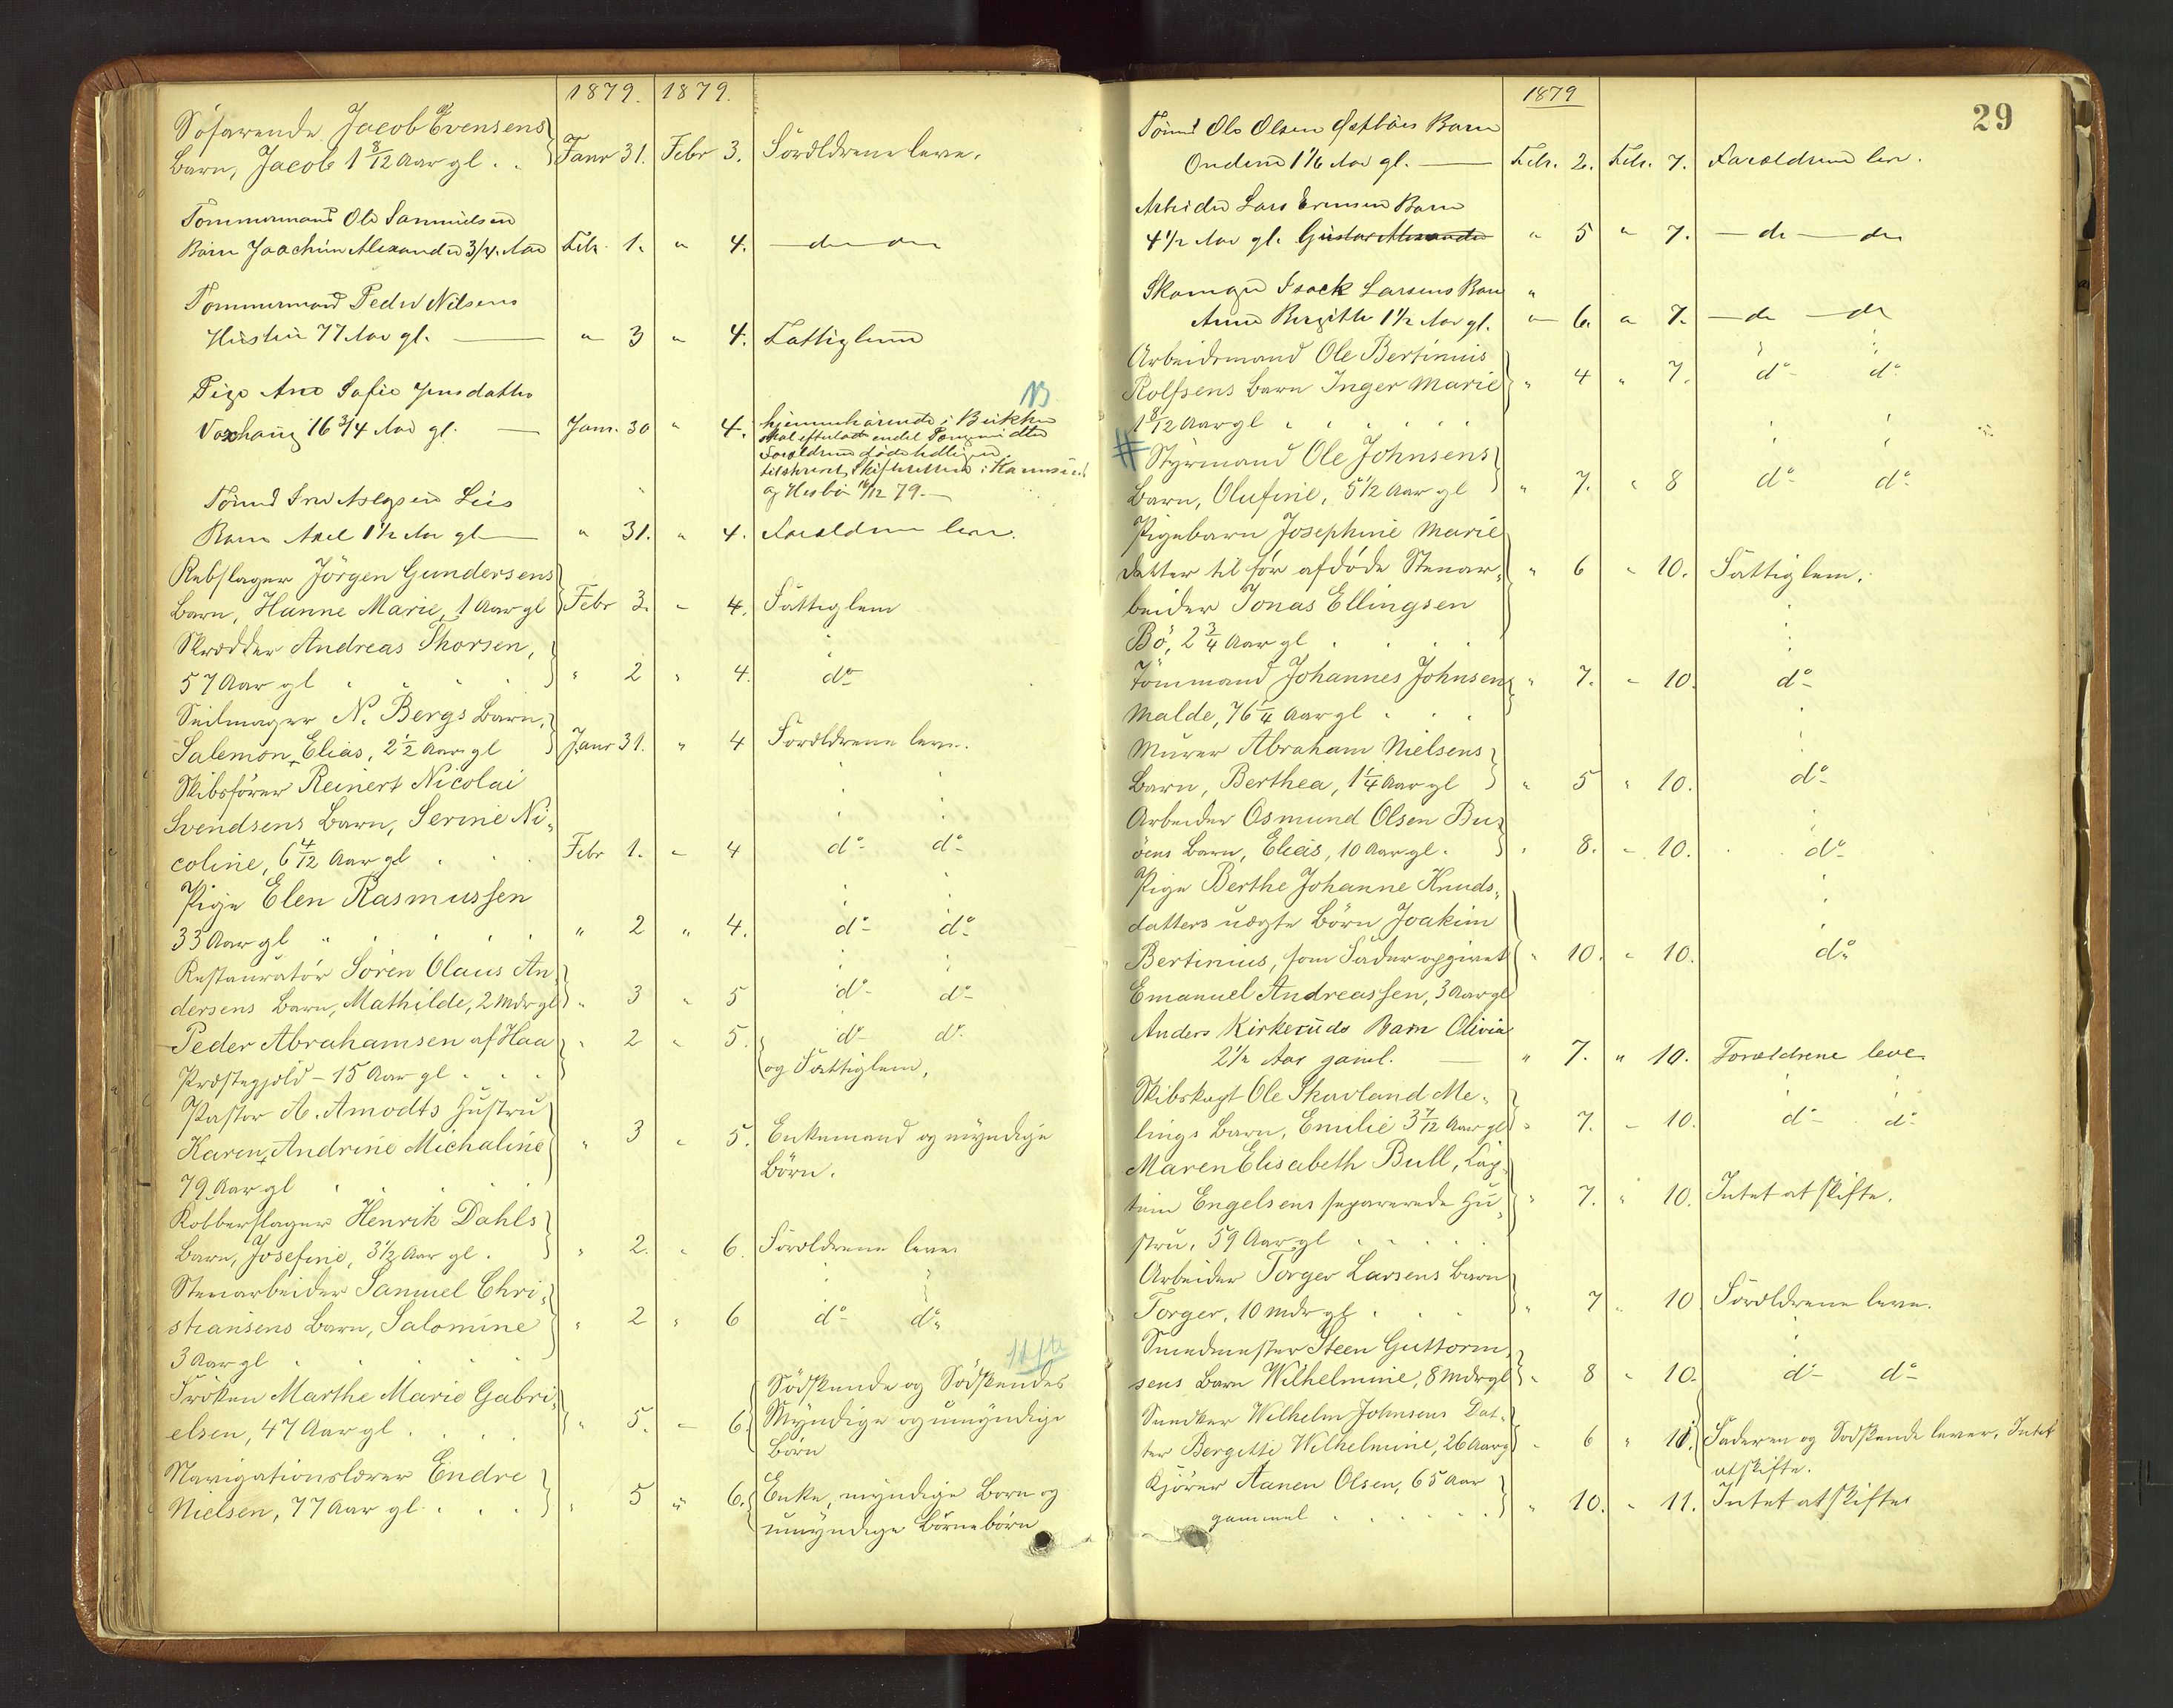 1879. 1879.
Söfarende Jacob Evensens
Barn, Jacob 1 8/12 Aar gl. . Janr 31. Febr 3. Forældrene leve.
Tömmermand Ole Samuelsen
Barn Joachim Alexander 3/4 Aar Feb. 1. " 4. — do — do
Tömmermand Peder Nilsens
Hustru 77 Aar gl. — " 3 " 4. Fattiglem
Pige Ane Sofie Jensdatter
NB
Vaxhaug 16 3/4 Aar gl. — Janr. 30 " 4. hjemmehörende i Bukken
skal efterlade endel
Forældrene döde tidligere
tilskrevet Skifteretten i Karmsund
og Hesbö 16/12 79. —
Tömmd
Barn Axel 1 1/2 Aar gl — " 31. " 4. Forældrene leve.
Rebslager Jörgen Gundersens
Barn, Hanne Marie, 1 Aar gl Febr 3. " 4. Fattiglem
Skrædder Andreas Thorsen,
57 Aar gl . . . " 2 " 4. do
Seilmager N. Bergs Barn,
Salemon Elias, 2 1/2 Aar gl Janr 31. " 4 Forældrene leve.
Skibsförer Reinert Nicolai
Svendsens Barn, Serine Ni-
coline, 6 4/12 Aar gl . . . Febr 1. " 4 do do
Pige Elen Rasmussen
33 Aar gl " . . . " 2 " 4. do do
Restauratör Sören Olaus An-
dersens Barn, Mathilde, 2 Mdr gl " 3 " 5 do do
Peder Abrahamsen af Haa " 2 " 5. do do
Præstegjeld - 15 Aar gl . . . og Fattiglem,
Pastor A. Amodts Hustru
Karen Andrine Michaline " 3 " 5. Enkemand og myndige
79 Aar gl . . . Börn.
Kobberslager Henrik Dahls
Barn, Josefine, 3 1/2 Aar gl . " 2. " 6. Forældrene leve
Stenarbeider Samuel Chri-
stiansens Barn, Salomine " 2 " 6 do do
3 Aar gl . . .
Fröken Marthe Marie Gabri- Södskende og Södskendes
elsen, 47 Aar gl . . . " 5. " 6. Myndige og umyndige
Börn
Navigationslærer Endre
Nielsen, 77 Aar gl . . . " 5 " 6. Enke, myndige Börn og
umyndige Börnebörn
1879
29
Tömmd Ole Olsen Barn
1 1/6 Aar gl. — Feb. 2. Feb. 7. Forældrene leve.
Arbeider Lars Barn
4 1/2 Aar gl. Gustav Alexander " 5 " 7. — do — do
Skomager Isack Larsens Barn "
Anne Bergitte 1 1/2 Aar gl. " 6. " 7. — do — do
Arbeidsmand Ole Bertinius
Rolfsens Barn Inger Marie " 4 " 7. do do
1 8/12 Aar gl . . .
# Styrmand Ole Johnsens
Barn, Olufine, 5 1/2 Aar gl " 7. " 8 do do
Pigebarn Josephine Marie
Datter til för afdöde Stenar- " 6 " 10. Fattiglem.
beider Jonas Ellingsen
Bö, 2 3/4 Aar gl . . .
Tömmand Johannes Johnsen " 7. " 10. do
Malde, 76 1/4 Aar gl . . .
Murer Abraham Nielsens
Barn, Berthea, 1 1/4 Aar gl " 5 " 10. do
Arbeider Osmund Olsen Bu-
öens Barn, Elias, 10 Aar gl. " 8. " 10. do
Pige Berthe Johanne Knuds-
datters uægte Börn Joakim
Bertinius, som Fader opgivet " 10. " 10. do
Emanuel Andreassen, 3 Aar gl
Anders Kirkeruds Barn Olivia
2 1/2 Aar gaml. — " 7. " 10. Forældrene leve
Skibskapt Ole Skavland Me-
lings Barn, Emilie 3 7/12 Aar gl " 7. " 10. do do
Maren Elisabeth Bull, Kap-
tein Engelsens separerede Hu- " 7. " 10. Intet at skifte.
stru, 59 Aar gl . . .
Arbeider Torger Larsens Barn
Torger, 10 Mdr gl . . . " 7 " 10 Forældrene leve.
Smedmester Steen Guttorm-
sens Barn Wilhelmine, 8 Mdr gl " 8 " 10. do do
Snedker Wilhelm Johnsens Dat-
ter Bergitte Wilhelmine, 26 Aar g " 6 " 11. Faderen og Södskende lever. Intet
at skifte.
Kjörer Aanen Olsen, 65 Aar
gammel . . . " 10. " 11. Intet at skifte